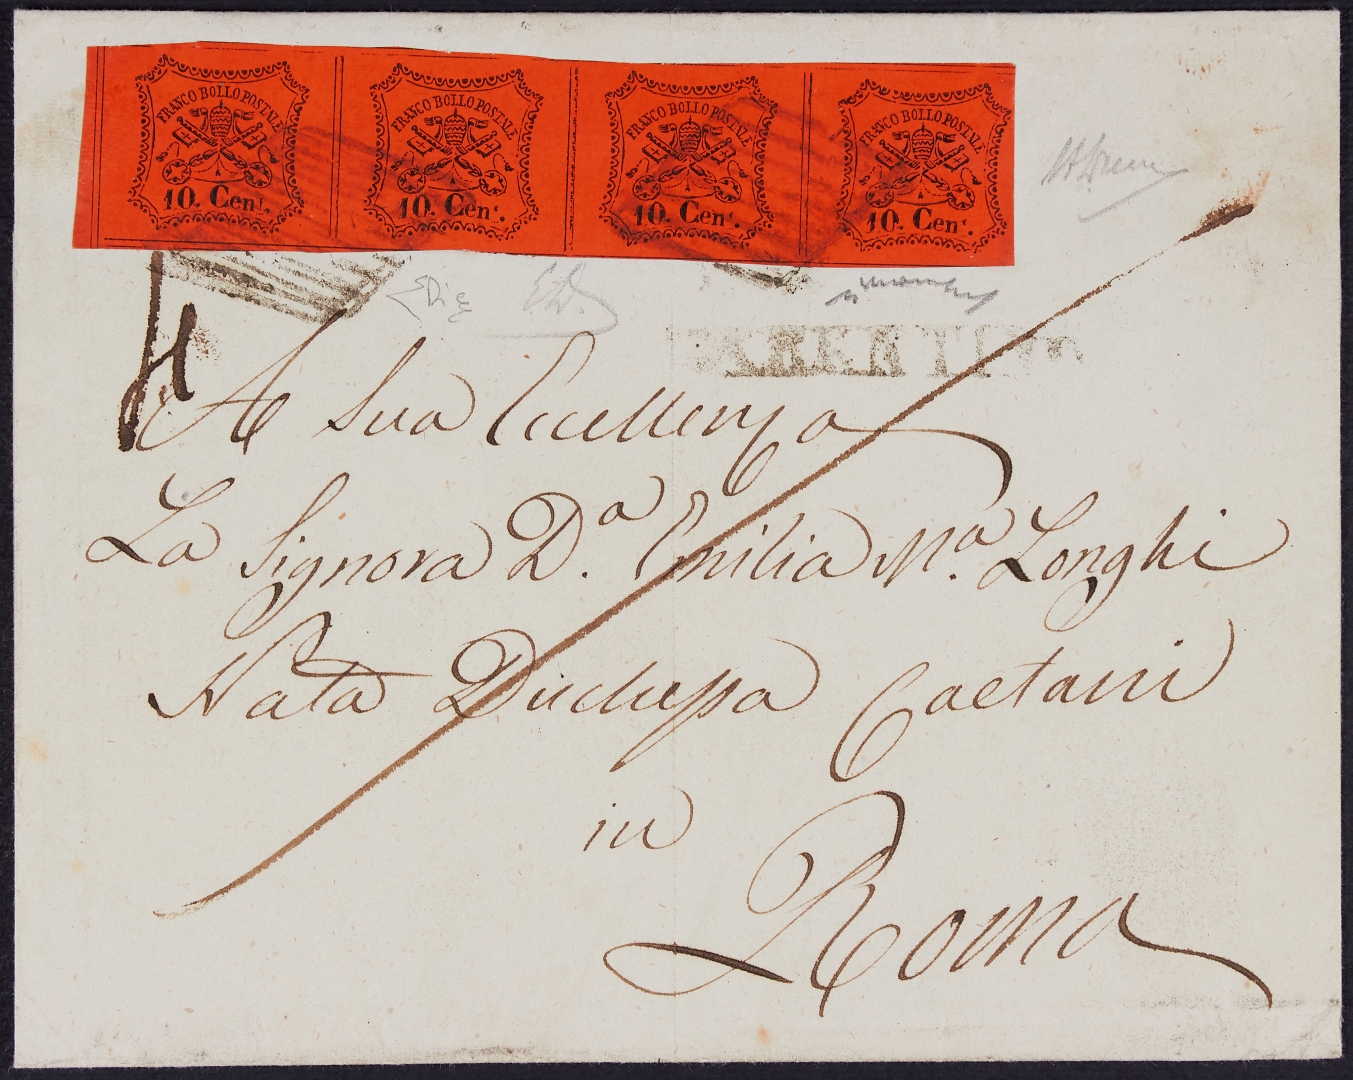 FRANCO BOLLO POSTALE FRANCO BOLLO POSTALE FRANCO BOLLO POSTALE FRANCO BOLLO POSTALE
10. Cent. 10. Cent. 10. Cent. 10. Cent.
A Sua Eccellenza
La Signora D.a Emilia M.a Longhi
Nata Duchessa Caetani
in
Roma